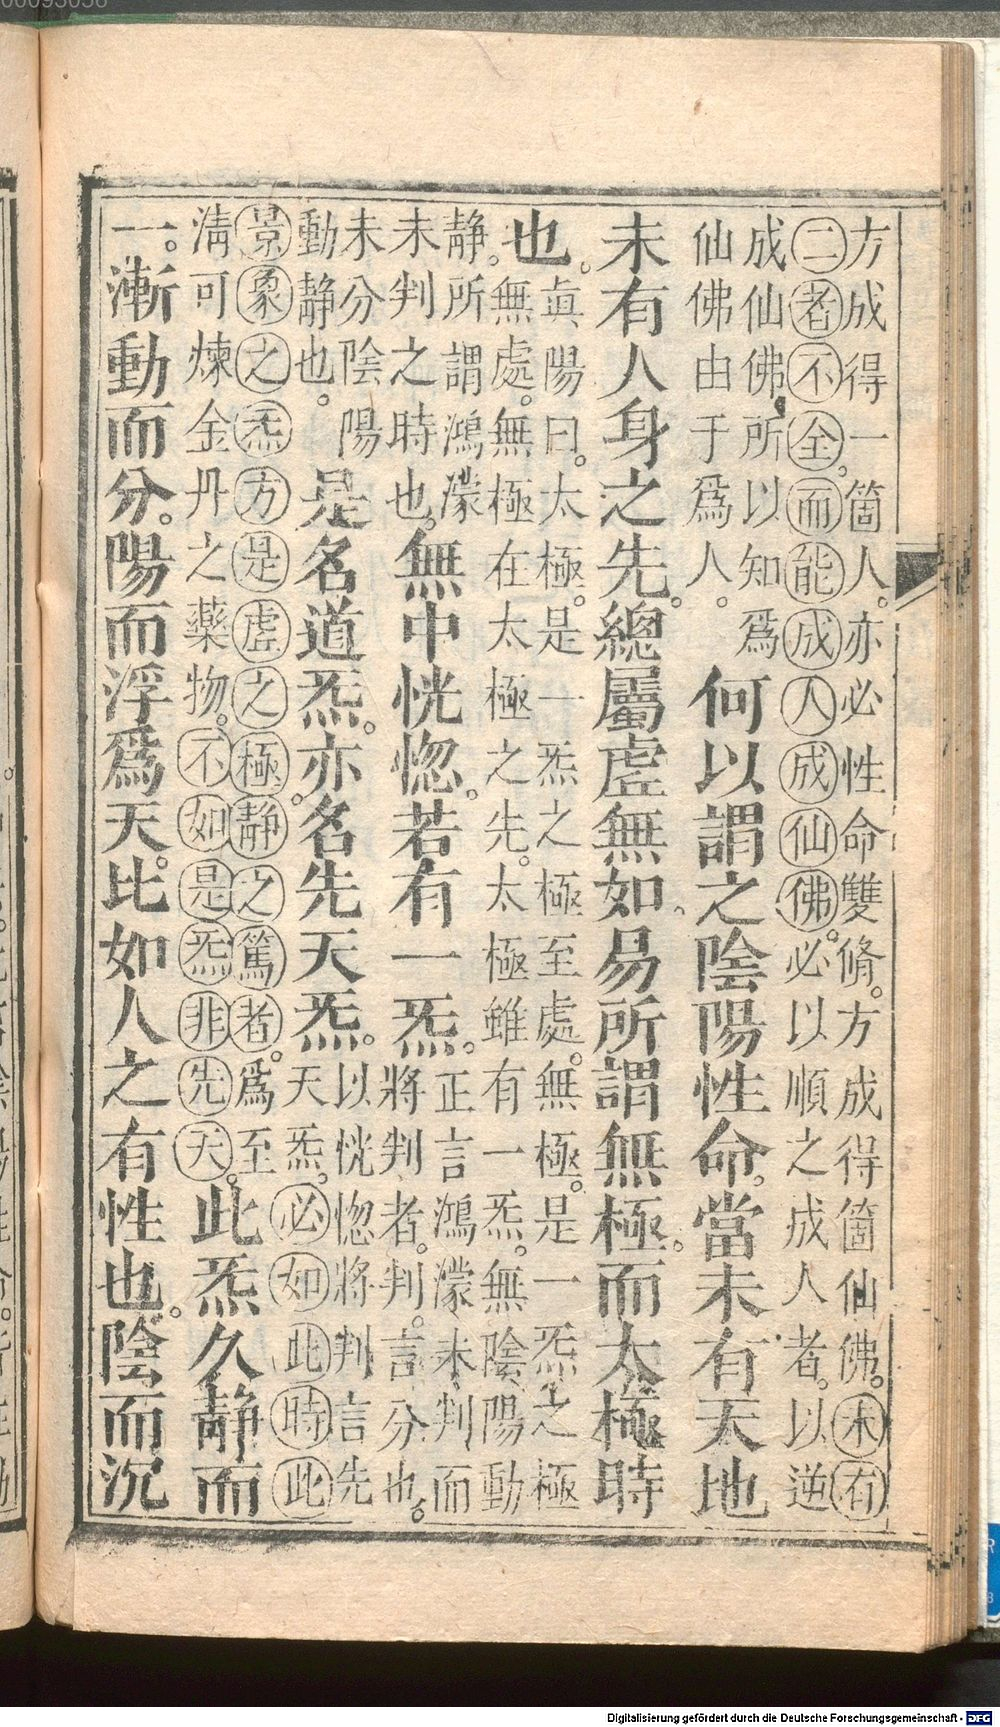 方成得一箇人。亦必性命雙脩。方成得箇仙佛。未有
二者不全。而能成人成仙佛。必以順之成人者。以逆
成仙佛。所以知爲
仙佛由于爲人。
何以謂之陰陽性命。當未有天地
未有人身之先。總屬虗無如。易所謂無極。而太極時
也。
眞陽曰。太極。是一炁之極至處。無極。是一炁之極
無處。無極在太極之先。太極雖有一炁。無陰陽動
静。所謂鴻濛
未判之時也。
無中恍惚。若有一炁。
正言鴻濛未判而
將判者。判。言分也。
未分陰陽
動静也。
是名道炁。亦名先天炁。
以恍惚將判言先
天炁。必如此時此
景象之炁方是虗之極静之篤者。爲至
清可煉金丹之藥物。不如是炁非先天。
此炁久静而
一。漸動而分。陽而浮爲天。比如人之有性也。陰而沉
Digitalisierung gefördert durch die Deutsche Forschungsgemeinschaft - DFG